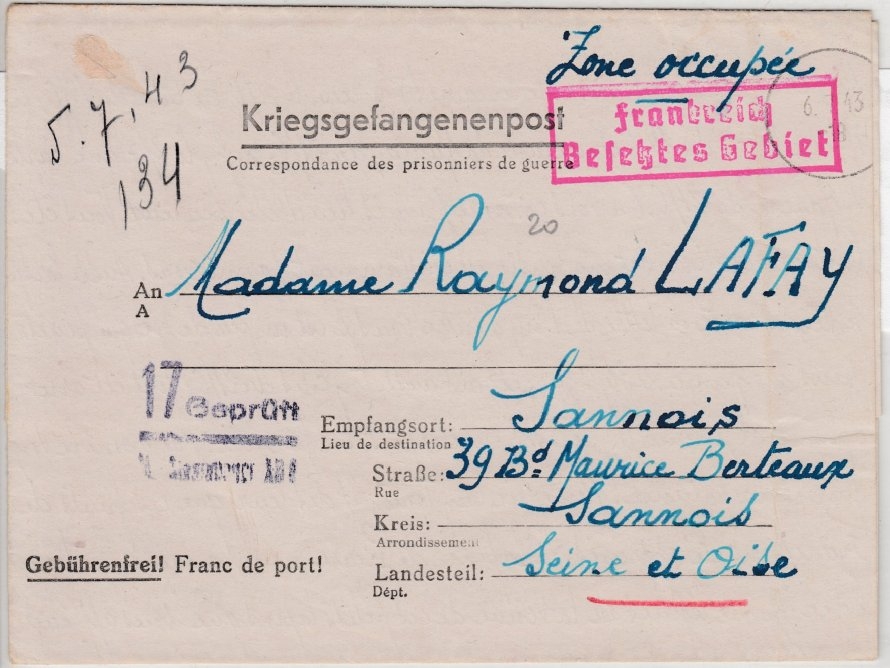 Zone occupée
5.7.43
134
Kriegsgefangenenpost
Correspondance des prisonniers de guerre
Frankreich
Besetztes Gebiet
6. 43
20
An Madame Raymond LAFAY
A
17 Geprüft
Empfangsort: Sannois
Lieu de destination
Straße: 39 Bd. Maurice Berteaux
Rue
Kreis: Sannois
Arrondissement
Gebührenfrei! Franc de port!
Landesteil: Seine et Oise
Dépt.